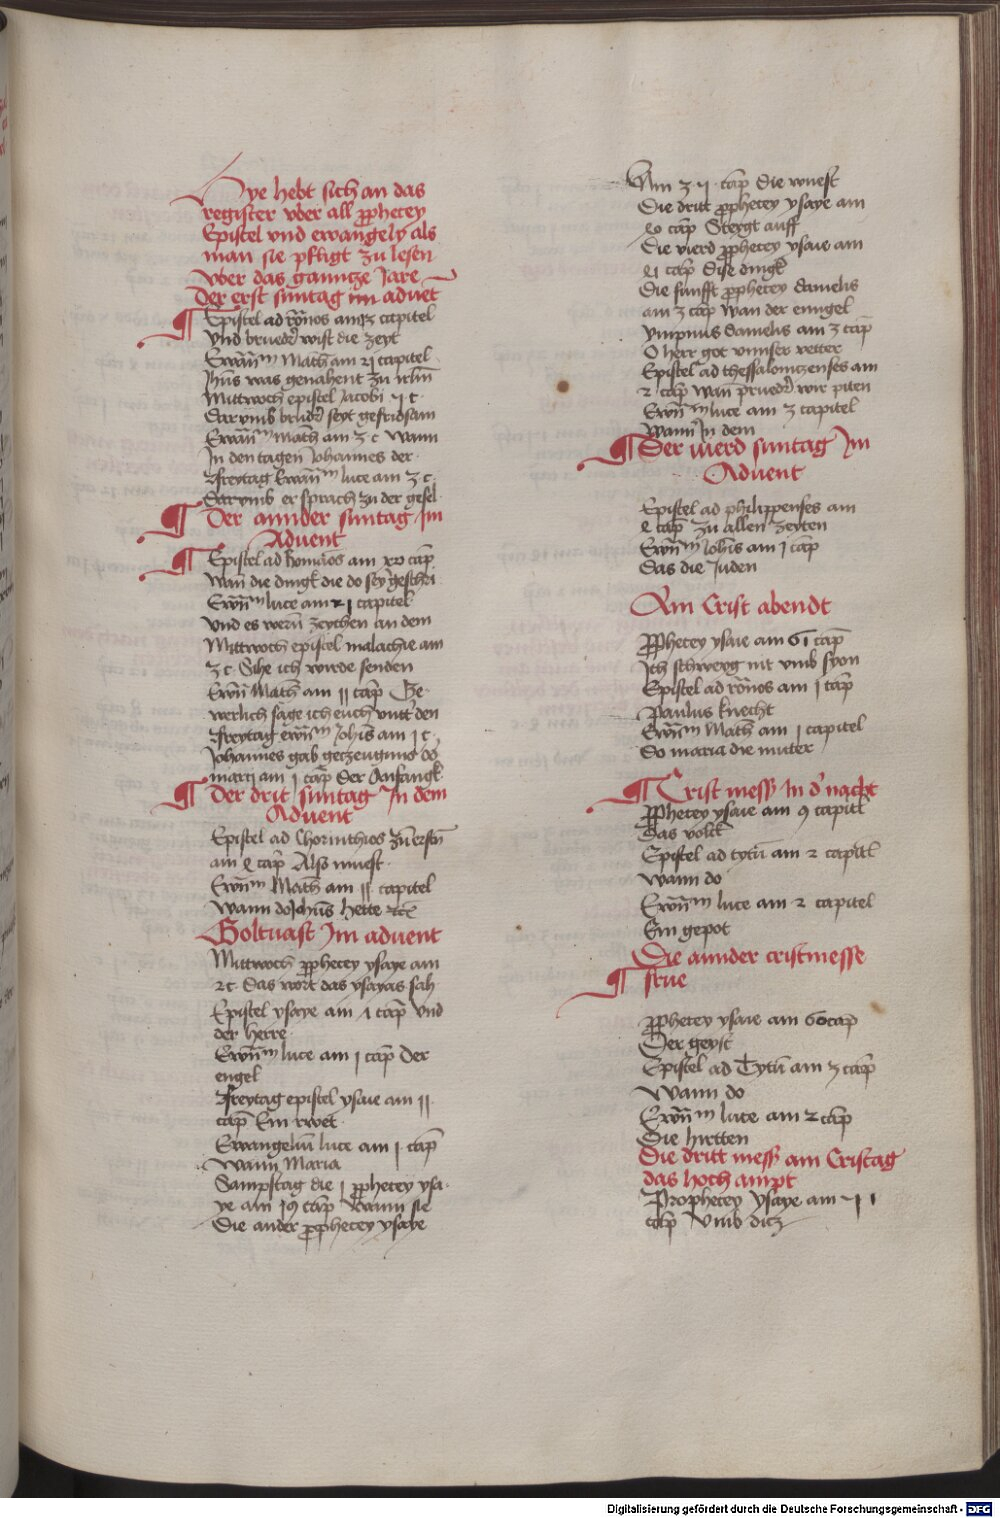 Hye hebt sich an das
register vber all prophecey
Epistel vnd ewangely als
man sie pfligt zu lesen
vber das ganncze Jare
Der erst suntag im aduet
Epistel ad Ro͂nos am 13 capitel
Vnd bruedr͛ wist die zeyt
Ewan͂m Math͂ am 21 capitel
Jhūs was genahent zu irlm̄
Mittwoch epistel Jacobi c
Darvmb brudr͛ seyt gefridsam
Ewan͂m math͂ am 3 c Wann
In den tagen Johannes der
Freytag Ewan͂m luce am 3 c
Darvmb er sprach zu der gesel
Der annder suntag Im
Aduent
Epistel ad Romanos am xv cap̄
Wan̄ die dingk die do sey geschri
Ewn͂m luce am 21 capitel
Vnd es wern̄ zeychen an dem
Mittwoch epistel malachie am
3 c Sihe ich wirde senden
Ewn͂ Math͂ am 11 cap̄ Ge
werlich sage ich euch vntt͛ den
Freytag ewn͂m Joh͂is am 1 c
Johannes gab geczeugnus do
marci am 1 cap̄ Der Anfangk
Der drit suntag In dem
Aduent
Epistel ad Chorinthios zu͂ erstn̄
am 4 cap̄ Also muest
Ewn͂m Math͂ am 11 capitel
Wann do Johan̄s hette etc̄
Goltuast Im aduent
Mittwoch prophecey ysaye am
2 c Das wort das ysayas sah
Epistel ysaye am 7 cap̄ Vnd
der herre
Ewn͂m luce am 1 cap̄ Der
engel
Freytag epistel ysaie am 11
cap̄ Ein rwet
Ewangeliū luce am 1 cap̄
Wann Maria
Sampstag die 1 prophecey ysa
ye am 19 cap̄ Wann sie
Die ander prophecey ysaye
Am 3 cap̄ Die wuest
Die dritt prophecey ysaye am
40 cap̄ Steygt auff
Die vierd prophecey ysaie am
41 cap̄ Dise dingk
Die funfft prophecey danielis
am 3 cap̄ Wan der enngel
Ympnus danielis am 3 cap̄
O herr got vnnser vetter
Epistel ad thessalonicenses am
2 cap̄ Wan̄ pruedr͛ wir piten
Ewn͂m luce am 3 capitel
Wann̄ In dem
Der vierd suntag Im
Aduent
Epistel ad philippenses am
4 cap̄ Zu allen zeyten
Ewn͂m Joh͂is am 1 cap̄
Das die Juden
Am Crist abendt
Prophecey ysaie am 61 cap̄
Ich schweyg nit vmb syon
Epistel ad Ro͂nos am 1 cap̄
Paulus knecht
Ewn͂m Math͂ am 1 capitel
Do maria die muter
Crist mess In d͛ nacht
Prophecey ysaie am 9 capitl̄
Das volck
Epistel ad tytū am 2 capitl̄
Wann do
Ewn͂m luce am 2 capitel
Ein gepot
Die annder cristmesse
frue
Prophecey ysaie am 60 cap̄
Der geyst
Epistel ad Tytū am 3 cap̄
Wann do
Ewn͂m luce am 2 cap̄
Die hirtten
Die dritt mess am Cristag
das hoch ampt
Prophecey Ysaye am
cap̄ Vmb dicz
Digitalisierung gefördert durch die Deutsche Forschungsgemeinschaft - DFG